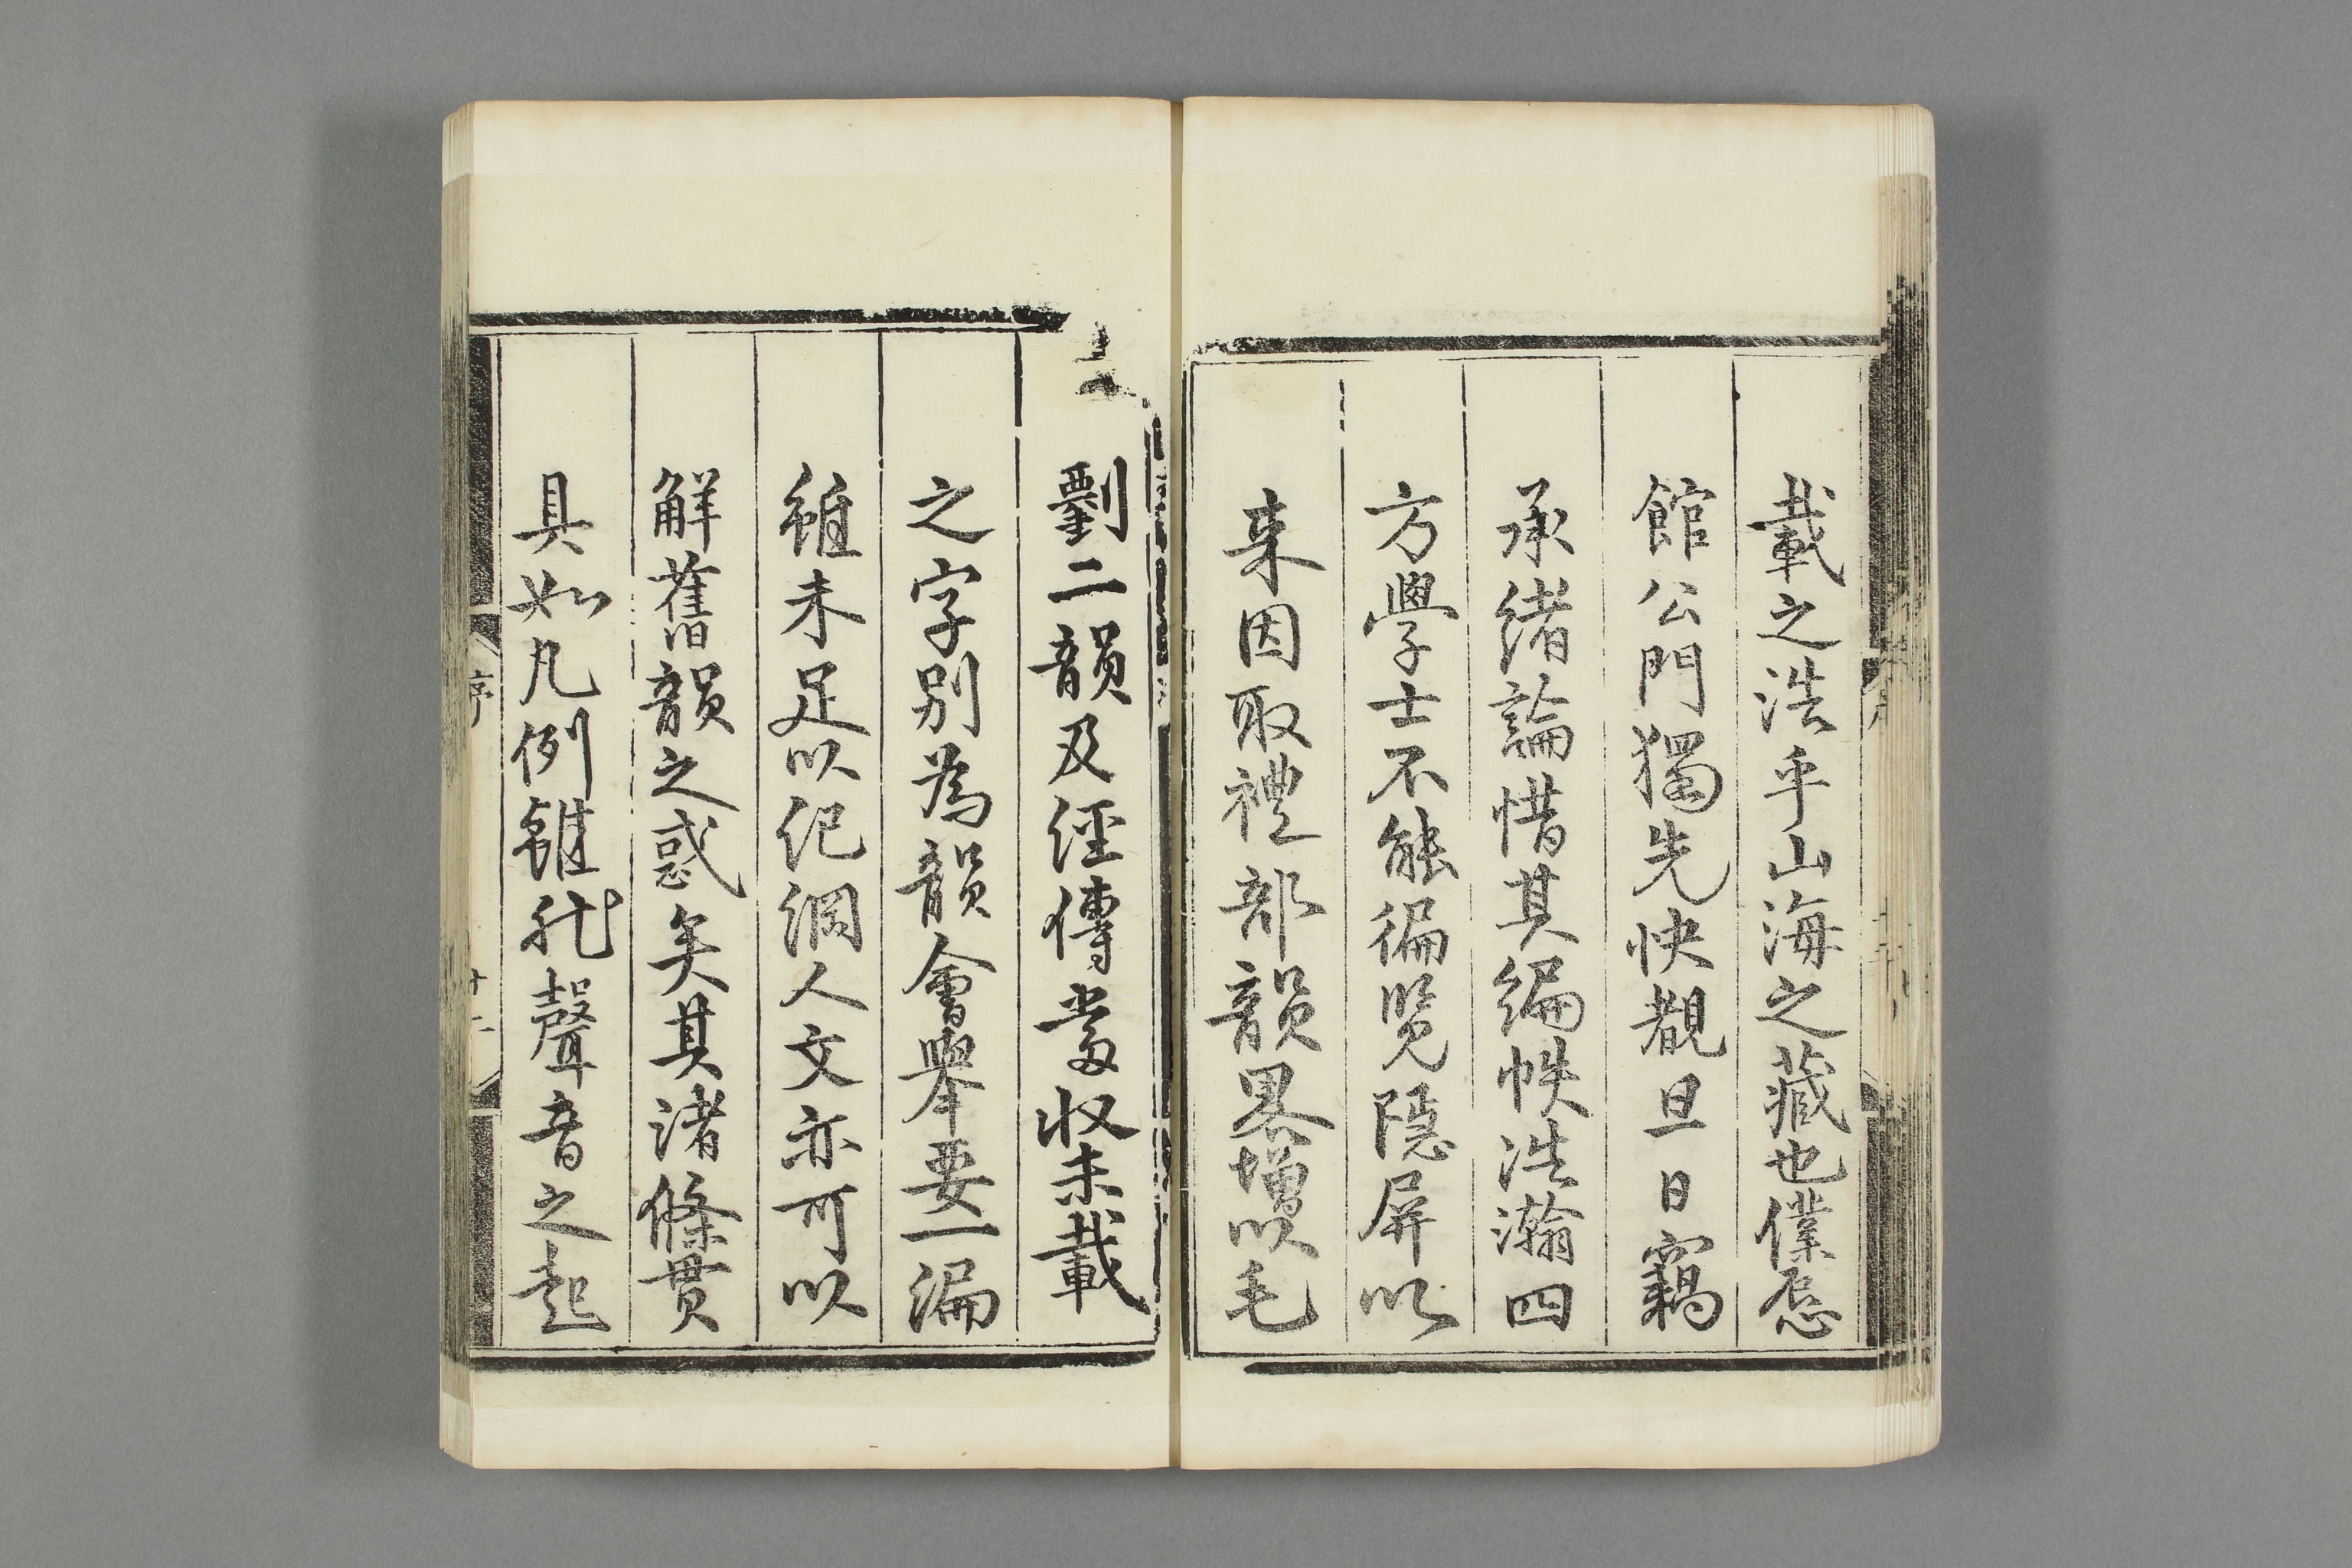 載之浩乎山海之藏也僕辱
館公門獨先快覩旦日竊
承緒論惜其編帙浩瀚四
方學士不能徧覽隱屏以
来因取禮部韻畧增以毛
劉二韻及經傳當收未載
之字別為韻會舉要一編
雖未足以紀綱人文亦可以
解舊韻之惑矣其諸條貫
具如凡例雖然聲音之起
序
十二